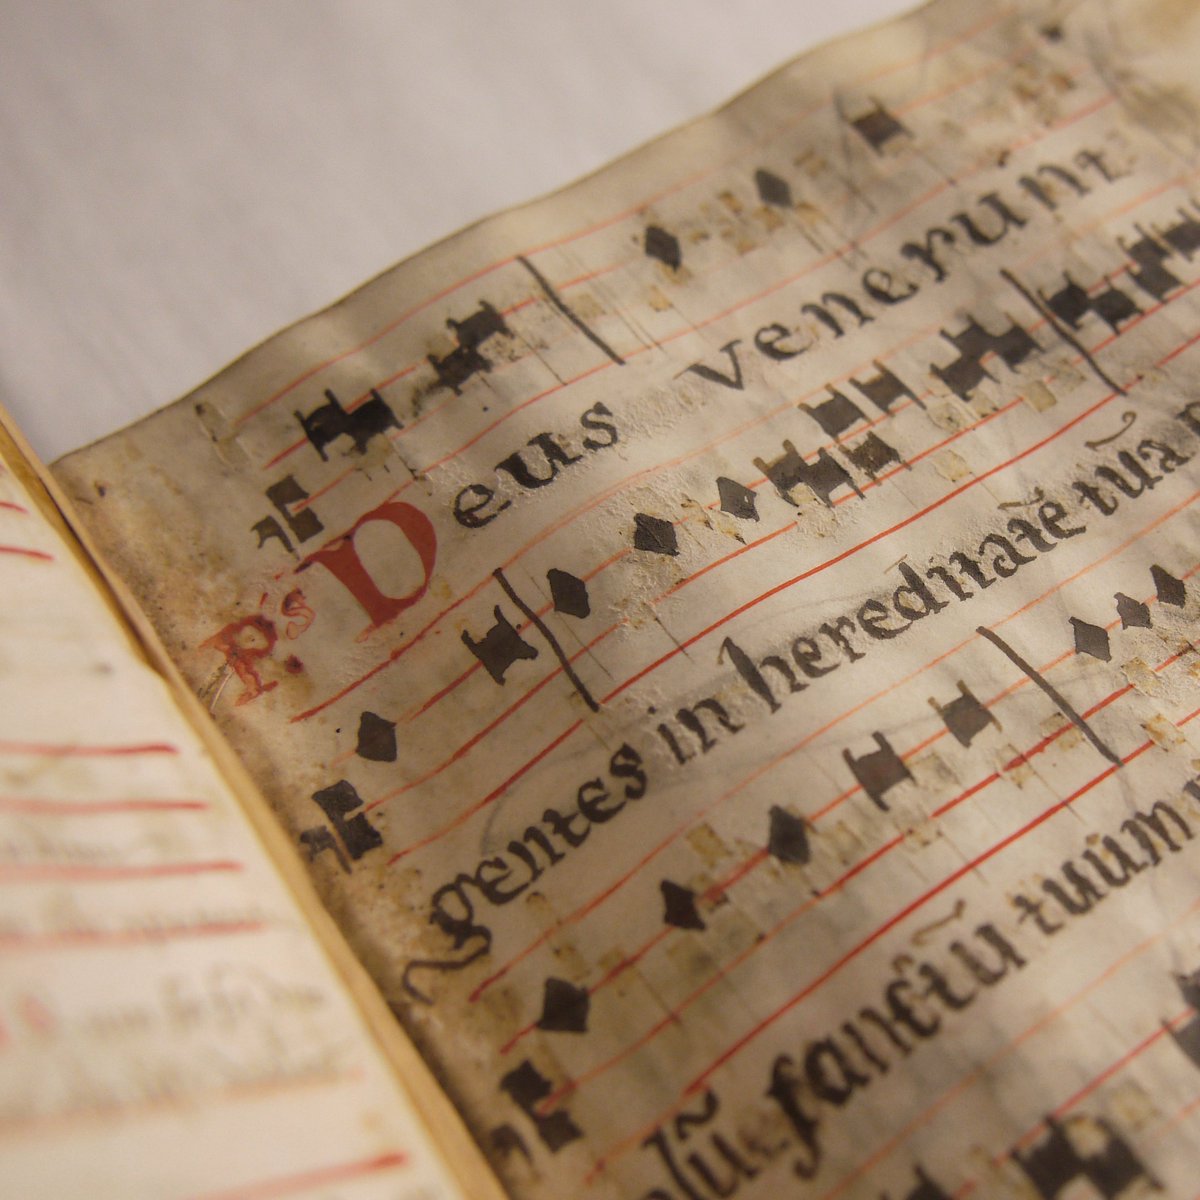 Ps. Deus venerunt
gentes in hereditatē tuā
plū sanctū tuum